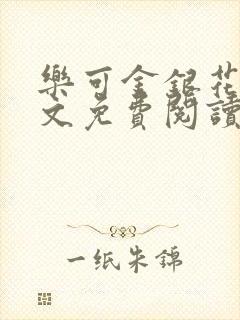 樂可金銀花
文免費閱讀
一纸朱錦